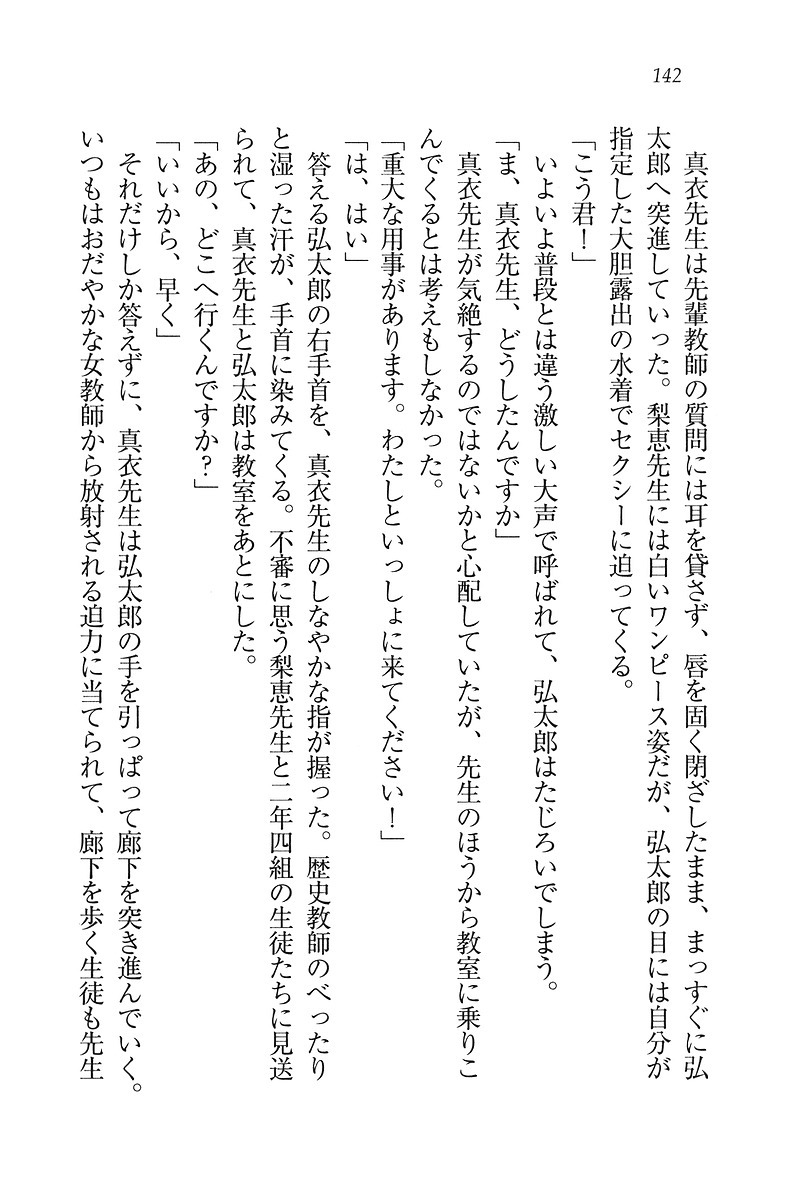 142
　真衣先生は先輩教師の質問には耳を貸さず、唇を固く閉ざしたまま、まっすぐに弘
太郎へ突進していった。梨恵先生には白いワンピース姿だが、弘太郎の目には自分が
指定した大胆露出の水着でセクシーに迫ってくる。
「こう君！」
　いよいよ普段とは違う激しい大声で呼ばれて、弘太郎はたじろいでしまう。
「ま、真衣先生、どうしたんですか」
　真衣先生が気絶するのではないかと心配していたが、先生のほうから教室に乗りこ
んでくるとは考えもしなかった。
「重大な用事があります。わたしといっしょに来てください！」
「は、はい」
　答える弘太郎の右手首を、真衣先生のしなやかな指が握った。歴史教師のべったり
と湿った汗が、手首に染みてくる。不審に思う梨恵先生と二年四組の生徒たちに見送
られて、真衣先生と弘太郎は教室をあとにした。
「あの、どこへ行くんですか？」
「いいから、早く」
　それだけしか答えずに、真衣先生は弘太郎の手を引っぱって廊下を突き進んでいく。
いつもはおだやかな女教師から放射される迫力に当てられて、廊下を歩く生徒も先生